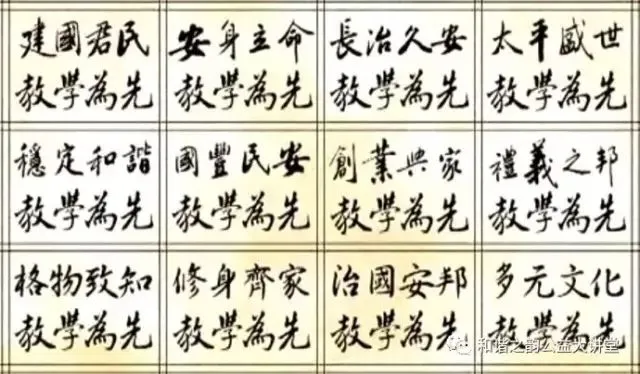 建國君民 安身立命 長治久安 太平盛世
教學為先 教學為先 教學為先 教學為先
穩定和諧 國豐民安 創業興家 禮義之邦
教學為先 教學為先 教學為先 教學為先
格物致知 修身齊家 治國安邦 多元文化
教學為先 教學為先 教學為先 教學為先
和谐之韵公益大讲堂